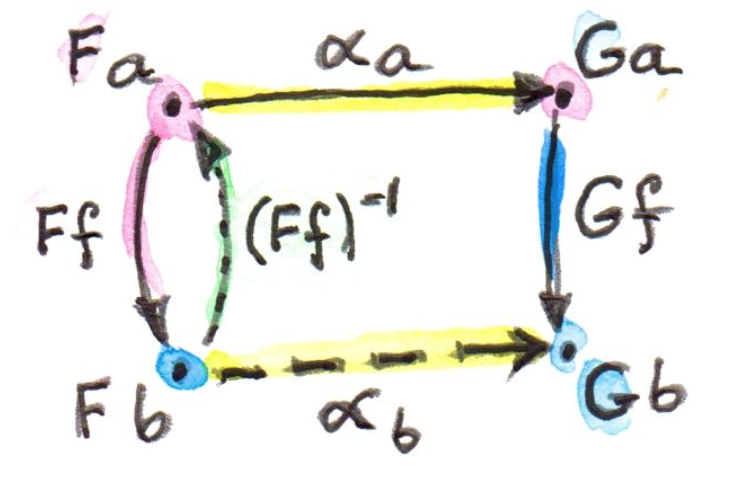 Fa αa Ga
Ff (Ff)⁻¹ Gf
Fb αb Gb